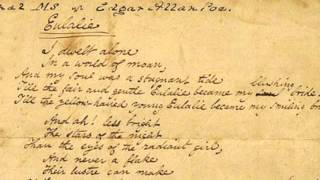 MS of Edgar Allan Poe.
Eulalie
I dwelt alone
In a world of moan,
And my soul was a stagnant tide
blushing
Till the fair and gentle Eulalie became my bride,
Till the yellow-haired young Eulalie became my smiling
And ah! less bright
The stars of the night
Than the eyes of the radiant girl,
And never a flake
Their lustre can make